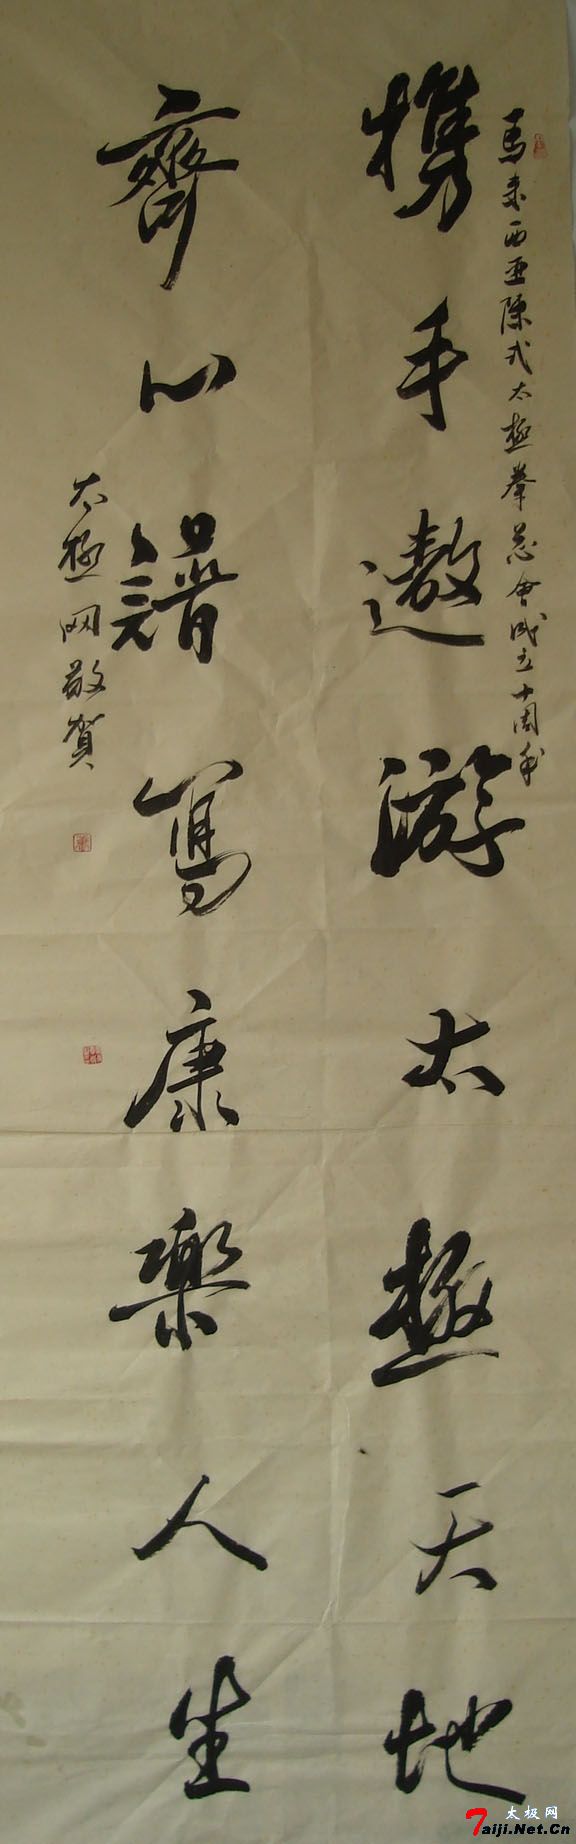 馬来西亚陳式太極拳总會成立十周年
携手遨游太極天地
齊心譜寫康樂人生
太極网敬賀
太极网
Taiji.Net.Cn